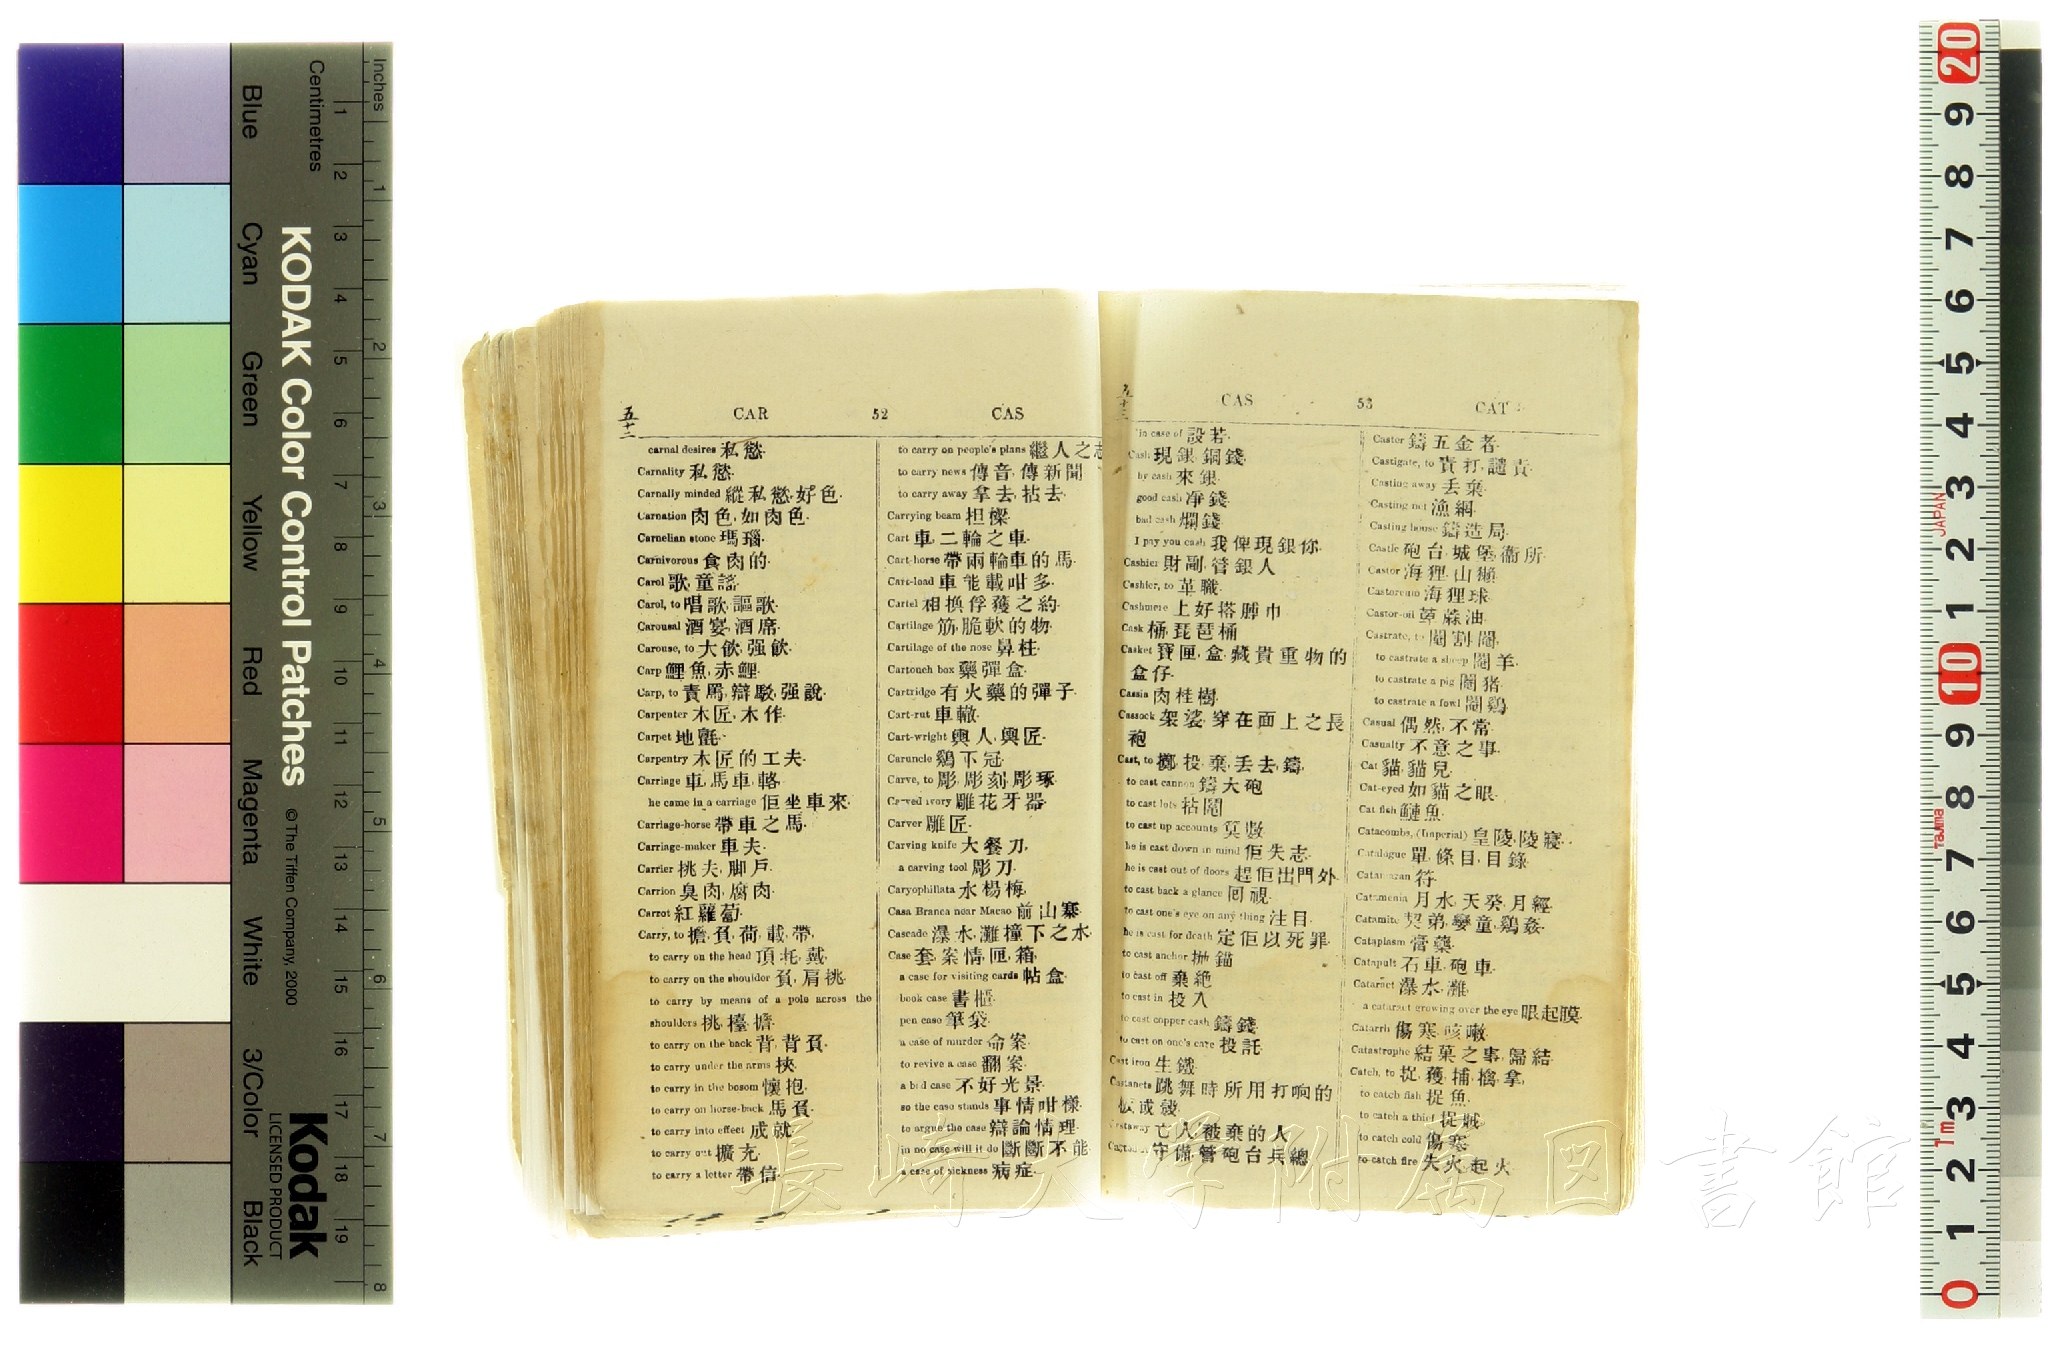 Inches
Centimetres
1 2 3 4 5 6 7 8
1 2 3 4 5 6 7 8 9 10 11 12 13 14 15 16 17 18 19
KODAK Color Control Patches
© The Tiffen Company, 2000
Kodak
LICENSED PRODUCT
Blue Cyan Green Yellow Red Magenta White 3/Color Black
五十二
CAR 52 CAS
carnal desires 私慾.
Carnality 私慾.
Carnally minded 縱私慾,好色.
Carnation 肉色,如肉色.
Carnelian stone 瑪瑙.
Carnivorous 食肉的.
Carol 歌,童謠.
Carol, to 唱歌,謳歌.
Carousal 酒宴,酒席.
Carouse, to 大飲,强飲.
Carp 鯉魚,赤鯉.
Carp, to 責罵,辯駁,强說.
Carpenter 木匠,木作.
Carpet 地氈.
Carpentry 木匠的工夫.
Carriage 車,馬車,輅.
he came in a carriage 佢坐車來.
Carriage-horse 帶車之馬.
Carriage-maker 車夫.
Carrier 挑夫,脚戶.
Carrion 臭肉,腐肉.
Carrot 紅蘿蔔.
Carry, to 擔,負,荷,載,帶.
to carry on the head 頂,托,戴.
to carry on the shoulder 負,肩挑.
to carry by means of a pole across the
shoulders 挑,擡,擔.
to carry on the back 背,背負.
to carry under the arms 挾.
to carry in the bosom 懷抱.
to carry on horse-back 馬負.
to carry into effect 成就.
to carry out 擴充.
to carry a letter 帶信.
to carry on people's plans 繼人之志
to carry news 傳音,傳新聞
to carry away 拿去,拈去.
Carrying beam 担樑.
Cart 車,二輪之車.
Cart-horse 帶兩輪車的馬.
Cart-load 車能載咁多.
Cartel 相換俘獲之約.
Cartilage 筋,脆軟的物.
Cartilage of the nose 鼻柱.
Cartouch box 藥彈盒.
Cartridge 有火藥的彈子.
Cart-rut 車轍.
Cart-wright 輿人,輿匠.
Caruncle 鷄下冠.
Carve, to 彫,彫刻,彫琢.
Carved ivory 雕花牙器.
Carver 雕匠.
Carving knife 大餐刀.
a carving tool 彫刀.
Caryophillata 水楊梅.
Casa Branca near Macao 前山寨.
Cascade 瀑水,灘撞下之水.
Case 套,案情,匣,箱.
a case for visiting cards 帖盒.
book case 書櫃.
pen case 筆袋.
a case of murder 命案.
to revive a case 翻案.
a bad case 不好光景.
so the case stands 事情咁樣.
to argue the case 辯論情理.
in no case will it do 斷斷不能
a case of sickness 病症.
五十三
CAS 53 CAT
in case of 設若.
Cash 現銀,銅錢.
by cash 來銀.
good cash 淨錢.
bad cash 爛錢.
I pay you cash 我俾現銀你.
Cashier 財副,管銀人
Cashier, to 革職.
Cashmere 上好搭膊巾
Cask 桶,琵琶桶
Casket 寶匣,盒,藏貴重物的
盒仔.
Cassia 肉桂樹.
Cassock 袈裟,穿在面上之長
袍
Cast, to 擲,投,棄,丢去,鑄.
to cast cannon 鑄大砲
to cast lots 拈鬮
to cast up accounts 算數
he is cast down in mind 佢失志.
he is cast out of doors 趕佢出門外.
to cast back a glance 囘視.
to cast one's eye on any thing 注目.
he is cast for death 定佢以死罪.
to cast anchor 抛錨
to cast off 棄絶
to cast in 投入
to cast copper cash 鑄錢.
to cast on one's care 投託
Cast iron 生鐵.
Castanets 跳舞時所用打响的
板或鼓.
Castaway 亡人,被棄的人
守備,管砲台兵總.
Caster 鑄五金者.
Castigate, to 責打,譴責.
Casting away 丢棄.
Casting net 漁網.
Casting house 鑄造局.
Castle 砲台,城堡,衞所.
Castor 海狸,山獺.
Castoreum 海狸球.
Castor-oil 萆蔴油.
Castrate, to 閹,割,閹.
to castrate a sheep 閹羊.
to castrate a pig 閹猪.
to castrate a fowl 閹鷄
Casual 偶然,不常.
Casualty 不意之事.
Cat 貓,貓兒.
Cat-eyed 如貓之眼.
Cat fish 鰱魚.
Catacombs, (Imperial) 皇陵,陵寢.
Catalogue 單,條目,目錄.
符.
Catamenia 月水,天癸,月經.
Catamite 契弟,孌童,鷄姦.
Cataplasm 膏藥.
Catapult 石車,砲車.
Cataract 瀑水,灘.
a cataract growing over the eye 眼起膜.
Catarrh 傷寒,咳嗽.
Catastrophe 結菓之事,歸結.
Catch, to 捉,獲,捕,擒,拿.
to catch fish 捉魚.
to catch a thief 捉賊.
to catch cold 傷寒.
to catch fire 失火,起火.
長崎大学附属図書館
20 9 8 7 6 5 4 3 2 1 10 9 8 7 6 5 4 3 2 1 0
JAPAN
Tajima
1m